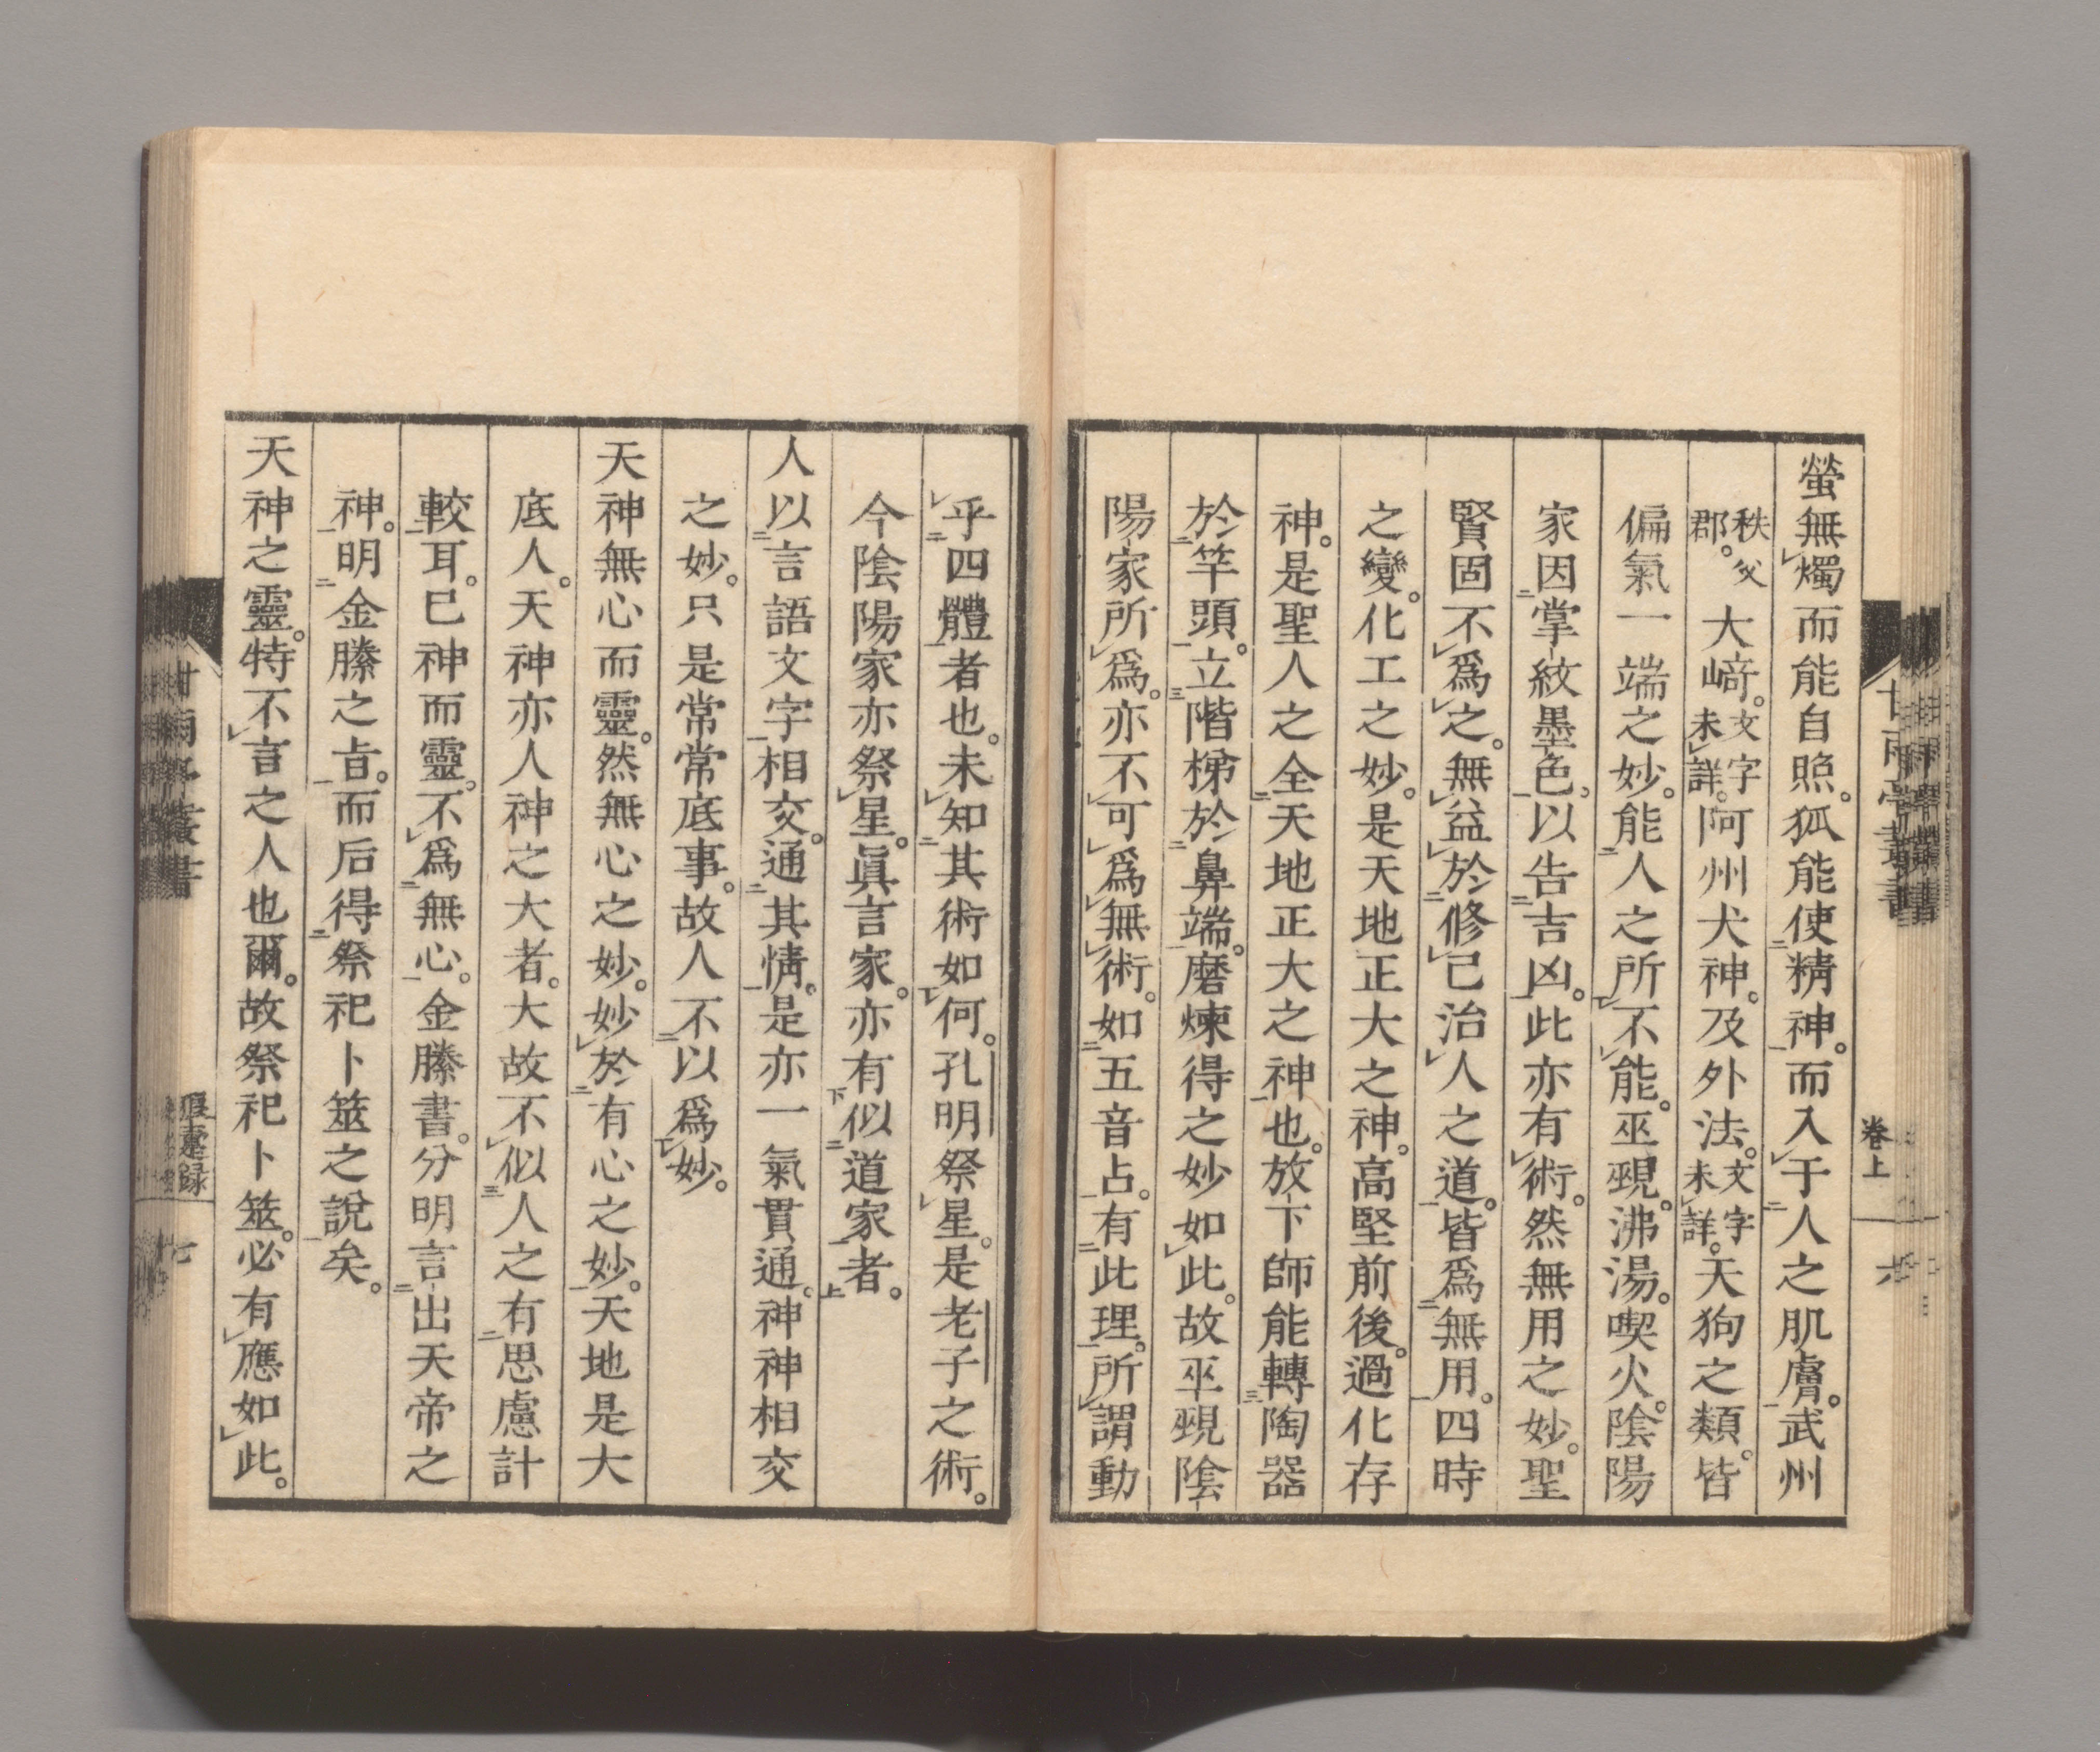 螢無燭而能自照。狐能使精神。而入于人之肌膚。武州
秩父郡。大﨑。文字未詳。阿州犬神。及外法。文字未詳。天狗之類。皆
偏氣一端之妙。能人之所不能。巫覡。沸湯。喫火。陰陽
家因掌紋墨色。以告吉凶。此亦有術。然無用之妙。聖
賢固不爲之。無益於修己治人之道。皆爲無用。四時
之變。化工之妙。是天地正大之神。高堅前後。過化存
神。是聖人之全天地正大之神也。放下師能轉陶器
於竿頭。立階梯於鼻端。磨煉得之妙如此。故巫覡陰
陽家所爲。亦不可爲無術。如五音占。有此理。所謂動
卷上
六
乎四體者也。未知其術如何。孔明祭星。是老子之術。
今陰陽家亦祭星。眞言家。亦有似道家者。
人以言語文字相交。通其情。是亦一氣貫通。神神相交
之妙。只是常常底事。故人不以爲妙。
天神無心而靈。然無心之妙。妙於有心之妙。天地是大
底人。天神亦人神之大者。大故不似人之有思慮計
較耳。已神而靈。不爲無心。金縢書。分明言出天帝之
神。明金縢之旨。而后得祭祀卜筮之說矣。
天神之靈。特不言之人也爾。故祭祀卜筮。必有應如此。
七